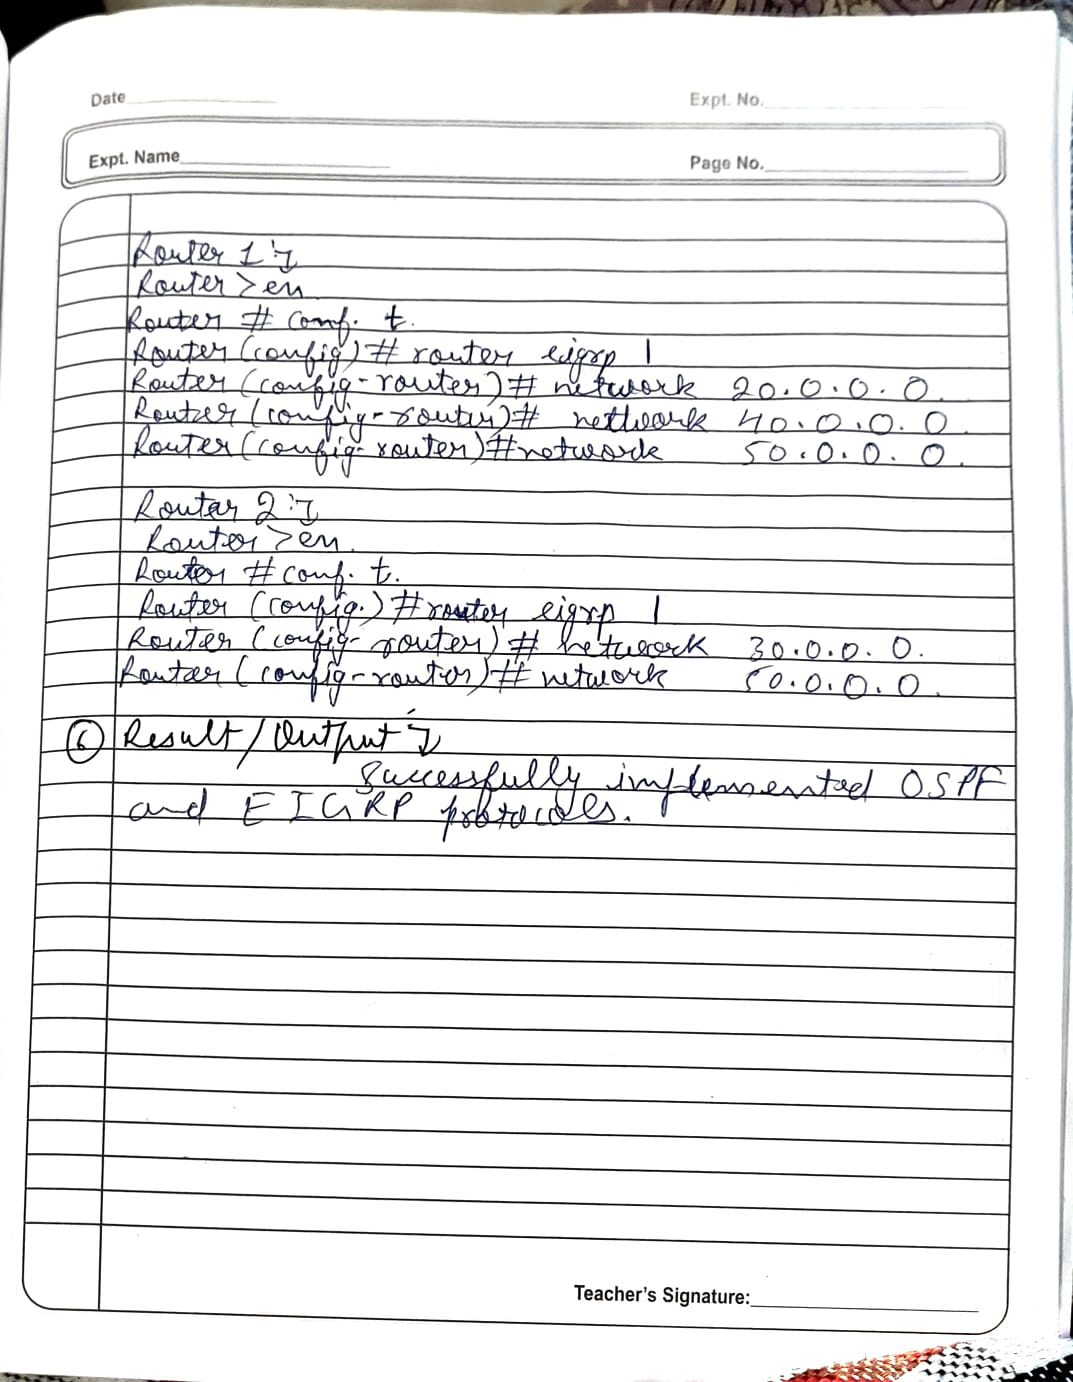 Date
Expt. No.
Expt. Name
Page No.
Router 1:-
Router >en
Router # conf. t.
Router (config) # router eigrp 1
Router (config-router) # network 20.0.0.0.
Router (config-router) # network 40.0.0.0.
Router (config-router) #network 50.0.0.0.
Router 2:-
Router >en.
Router # conf. t.
Router (config.) #router eigrp 1
Router (config-router) # network 30.0.0.0.
Router (config-router) # network 50.0.0.0.
6 Result/Output :-
Successfully implemented OSPF
and EIGRP protocoles.
Teacher's Signature: